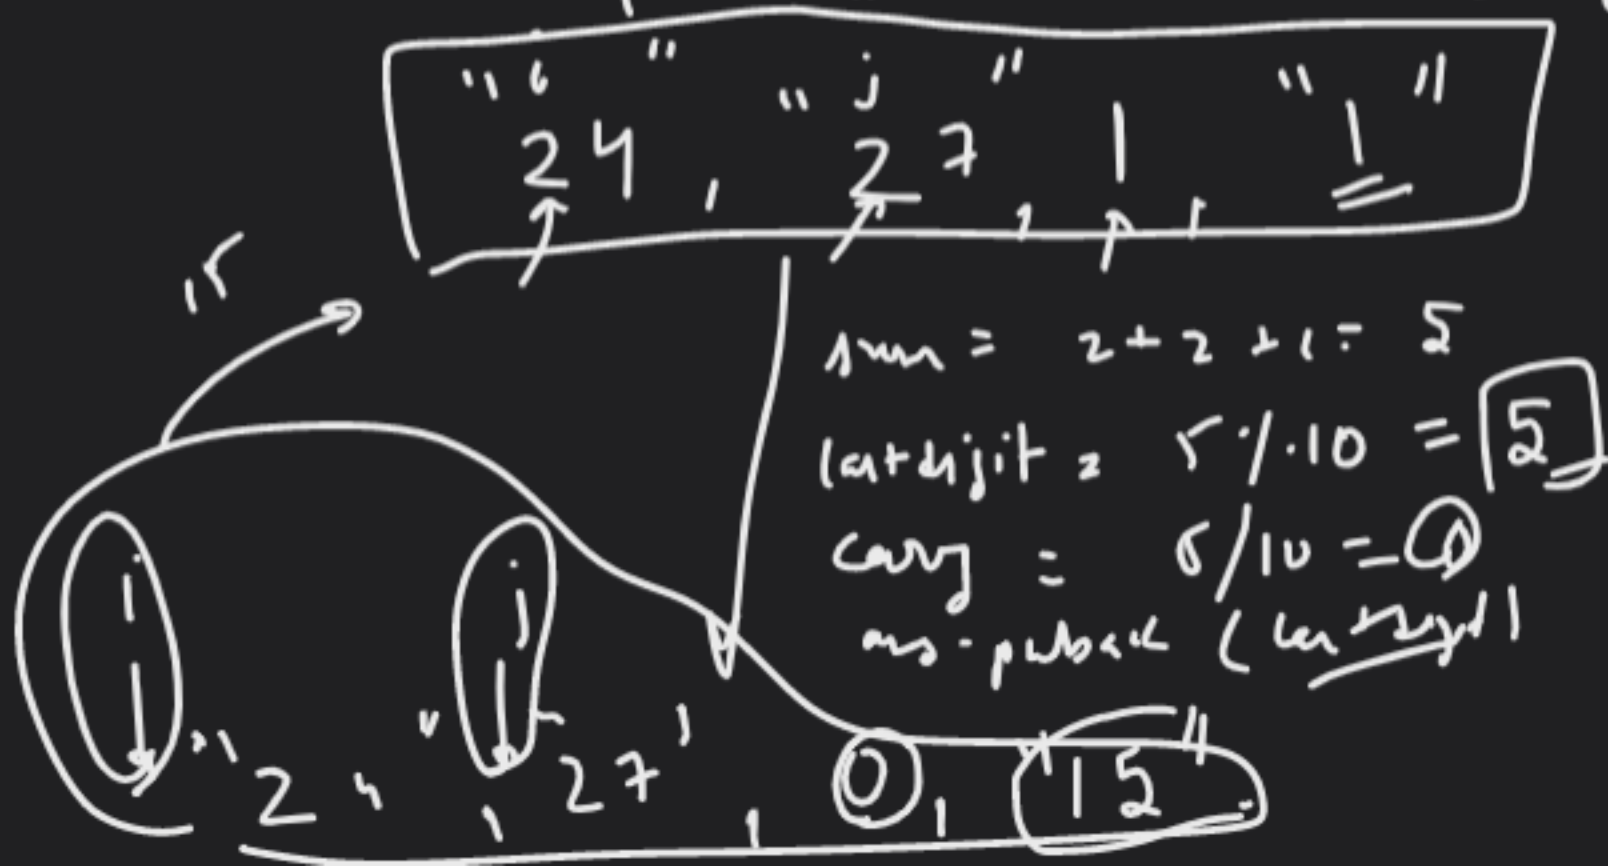 i j
"24, "27", 1, "1"
sum = 2+2+1 = 5
lastdigit = 5%.10 = 5
carry = 5/10 = 0
ans.pusback (lastdigit)
i j
"24, "27, 0, "15"